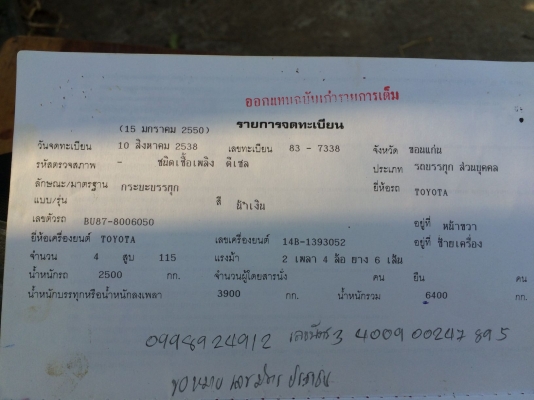 ออกแทนฉบับเก่ารายการเต็ม
(15 มกราคม 2550) รายการจดทะเบียน
วันจดทะเบียน 10 สิงหาคม 2538 เลขทะเบียน 83 - 7338 จังหวัด ขอนแก่น
รหัสตรวจสภาพ - ชนิดเชื้อเพลิง ดีเซล ประเภท รถบรรทุก ส่วนบุคคล
ลักษณะ/มาตรฐาน กระบะบรรทุก ยี่ห้อรถ TOYOTA
แบบ/รุ่น สี น้ำเงิน
เลขตัวรถ BU87-8006050 อยู่ที่ หน้าขวา
ยี่ห้อเครื่องยนต์ TOYOTA เลขเครื่องยนต์ 14B-1393052 อยู่ที่ ซ้ายเครื่อง
จำนวน 4 สูบ 115 แรงม้า 2 เพลา 4 ล้อ ยาง 6 เส้น
น้ำหนักรถ 2500 กก. จำนวนผู้โดยสารนั่ง คน ยืน คน
น้ำหนักบรรทุกหรือน้ำหนักลงเพลา 3900 กก. น้ำหนักรวม 6400 กก.
0998924912 3 4009 00247 89 5